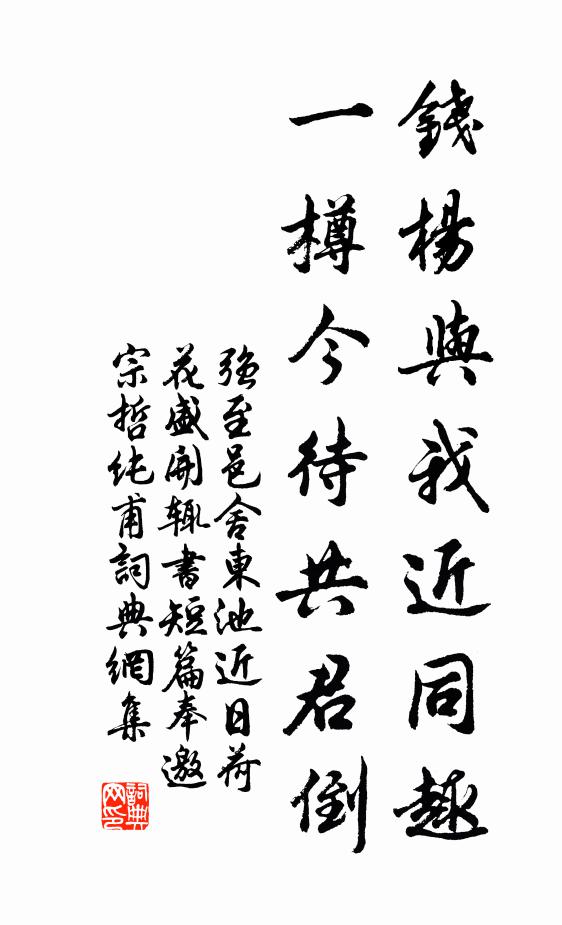 錢楊與我近同趣
一樽今待共君倒
強至邑舍東池近日荷
花盛開輒書短篇奉邀
宗哲純甫詞典網集
詞典網印